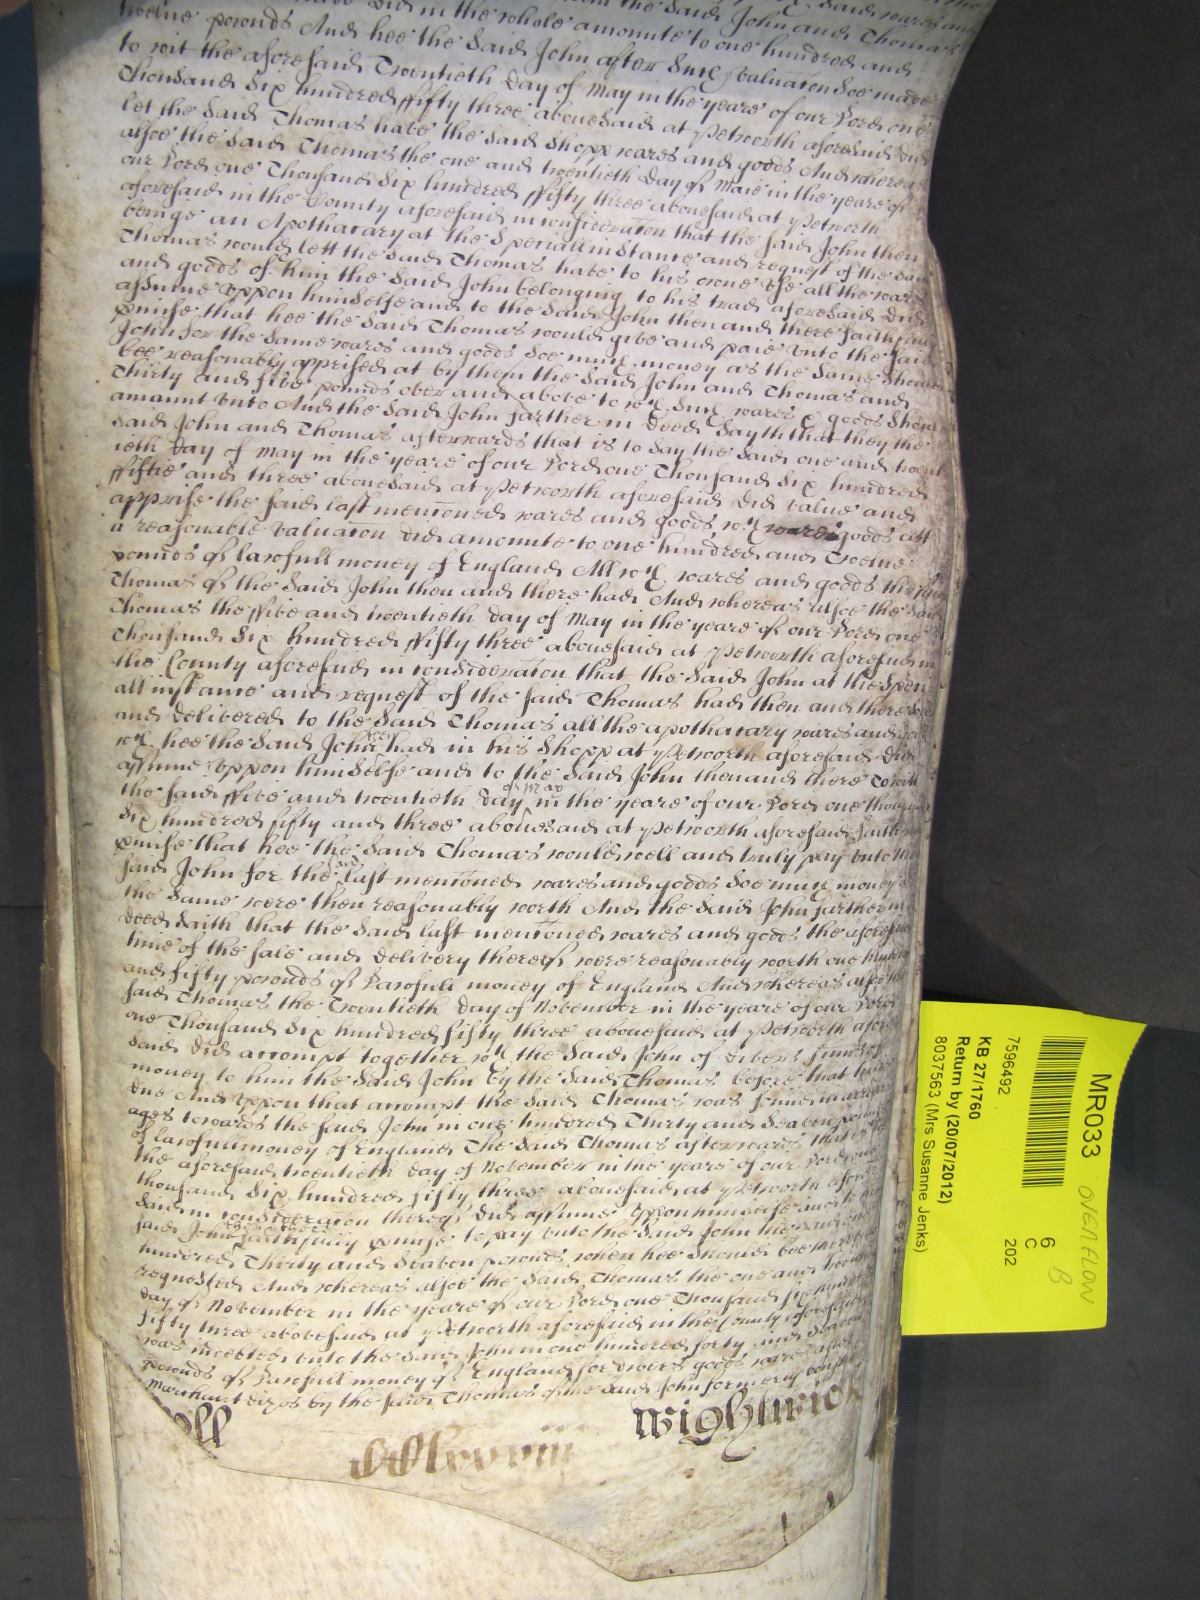 the said John and Thomas
twelve pounds And hee the said John after such valuation soe made
did in the whole amounte to one hundred and
to wit the aforesaid Twentieth day of May in the yeare of our Lord one
Thousand Six hundred ffifty three abovesaid at Petworth aforesaid did
let the said Thomas have the said Shopp wares and goods And whereas
alsoe the said Thomas the one and twentieth day of Maie in the yeare of
our Lord one Thousand Six hundred ffifty three abovesaid at Petworth
aforesaid in the County aforesaid in consideracon that the said John then
beinge an Apothacary at the Speciall instance and request of the said
Thomas would lett the said Thomas have to his owne use all the wares
and goods of him the said John belonging to his trade aforesaid did
assume uppon himselfe and to the said John then and there faithfully
pmise that hee the said Thomas would give and paie unto the said
John for the same wares and goods soe much money as the same should
bee reasonably apprised at by them the said John and Thomas and
Thirty and five pounds over and above to wch such wares & goods should
amount unto And the said John farther in deed sayth that they the
said John and Thomas afterwards that is to say the said one and twent
ieth day of May in the yeare of our Lord one Thousand Six hundred
ffiftie and three abovesaid at Petworth aforesaid did value and
apprise the said last mentioned wares and goods wch wares goods att
a reasonable valuation did amounte to one hundred and Twelve
pounds of lawfull money of England All wch wares and goods the said
Thomas of the said John then and there had And whereas alsoe the said
Thomas the ffive and twentieth day of May in the yeare of our Lord one
Thousand Six hundred ffifty three abovesaid at Petworth aforesaid in
the County aforesaid in consideration that the said John at the speci
all instance and request of the said Thomas had then and there sold
and delivered to the said Thomas all the apothacary wares and goods
wch hee the said John then had in his Shopp at Petworth aforesaid did
assume uppon himselfe and to the said John then and there to wit
the said ffive and twentieth day of May in the yeare of our Lord one thousand
Six hundred fifty and three abovesaid at Petworth aforesaid faithfully
pmise that hee the said Thomas would well and truly pay unto the
said John for the said last mentioned wares and goods soe much money as
the same were then reasonably worth And the said John farther in
deed saith that the said last mentioned wares and goods the aforesaid
time of the sale and delivery thereof were reasonably worth one hundred
and fifty pounds of Lawfull money of England And whereas alsoe the
said Thomas the Twentieth day of November in the yeare of our Lord
one Thousand Six hundred fifty three abovesaid at Petworth afore
said did accompt together wth the said John of divers summs of
money to him the said John by the said Thomas before that time
due And uppon that accompt the said Thomas was found in arrer
ages towards the said John in one hundred Thirty and Seaven pounds
of lawfull money of England The said Thomas afterwards that is
the aforesaid twentieth day of November in the yeare of our Lord one
thousand Six hundred fifty three abovesaid at Petworth afore
said in consideracon thereof did assume uppon himselfe and to the
said John then and there faithfully pmise to pay unto the said John the said one
hundred Thirty and Seaven pounds when hee should bee thereunto
requested And whereas alsoe the said Thomas the one and twentieth
day of November in the yeare of our Lord one Thousand six hundred
fifty three abovesaid at Petworth aforesaid in the County aforesaid
was indebted unto the said John in one hundred forty and Seaven
pounds of Lawfull money of England for divers goods wares and
marchandizes by the said Thomas of the said John formerly bought
Wightwick
MR033
OVERFLOW
B
6
C
202
7596492
KB 27/1760
Return by (20/07/2012)
8037563 (Mrs Susanne Jenks)